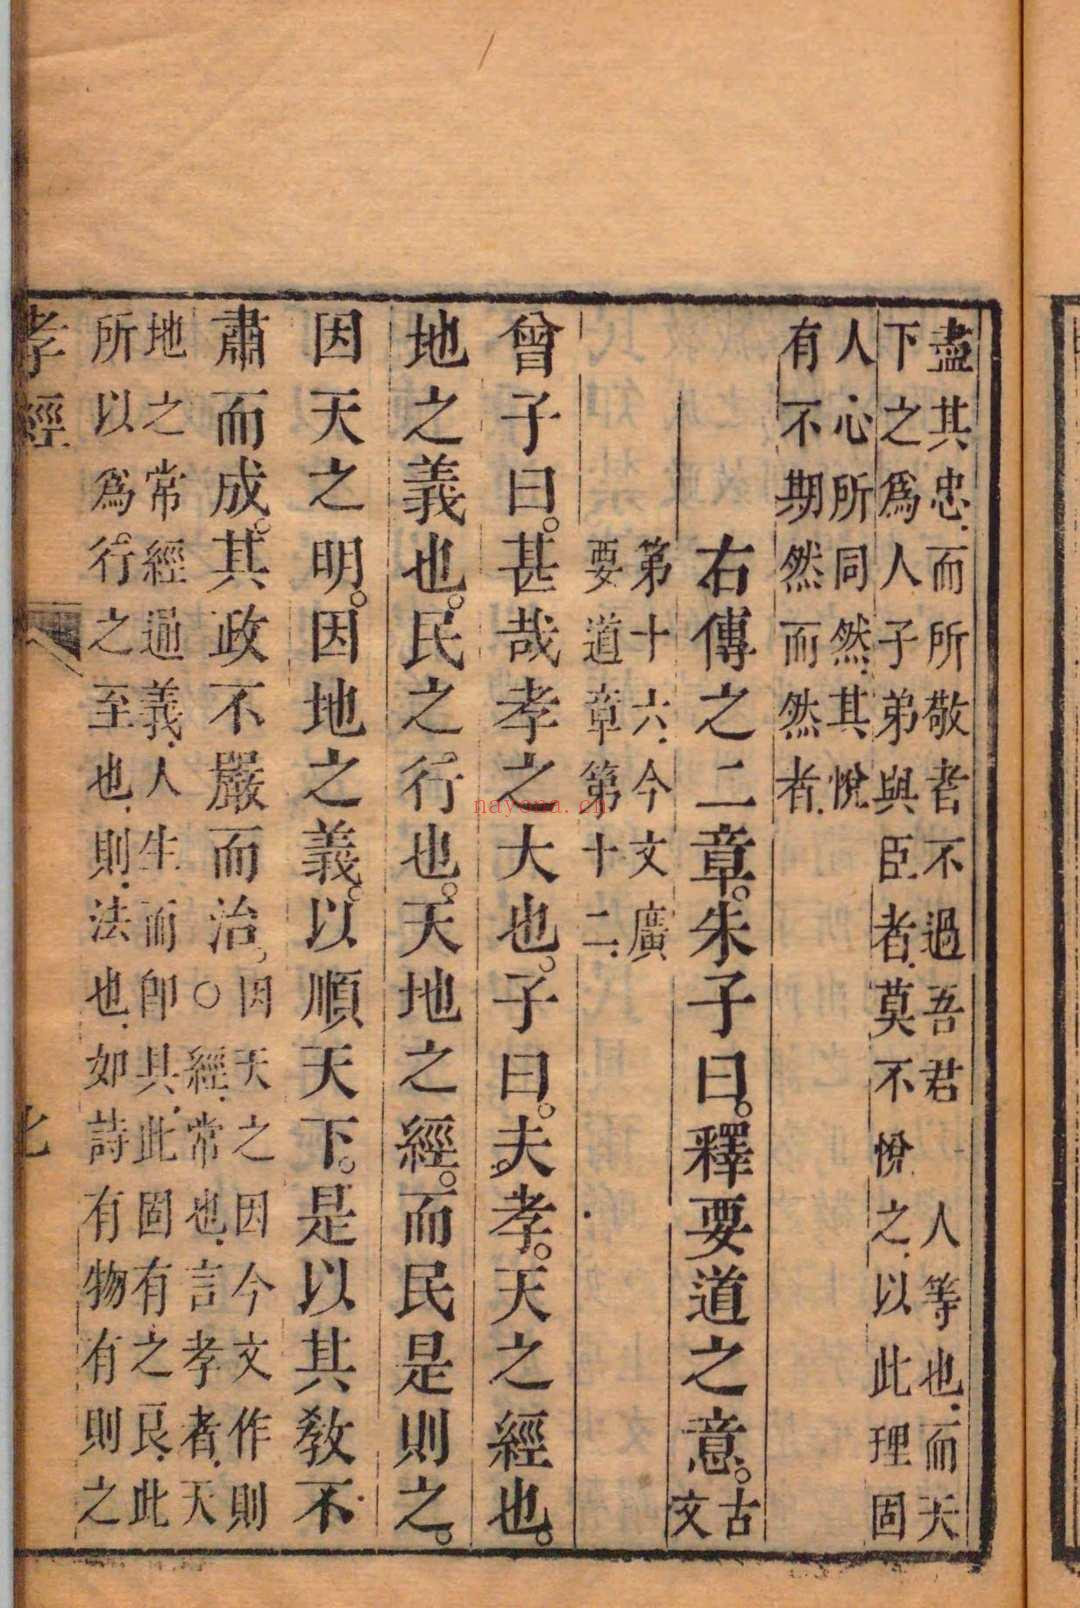 盡其忠而所敬者不過吾君一人等也而天
下之爲人子弟與臣者莫不悅之以此理固
人心所同然其悅
有不期然而然者
右傳之二章朱子曰釋要道之意古
文
第十六今文廣
要道章第十二
曾子曰甚哉孝之大也子曰夫孝天之經也
地之義也民之行也天地之經而民是則之
因天之明因地之義以順天下是以其教不
肅而成其政不嚴而治〇因天之因今文作則
經常也言孝者天
地之常經通義人生而卽具此固有之良此
所以爲行之至也則法也如詩有物有則之
孝經
nayona.cn